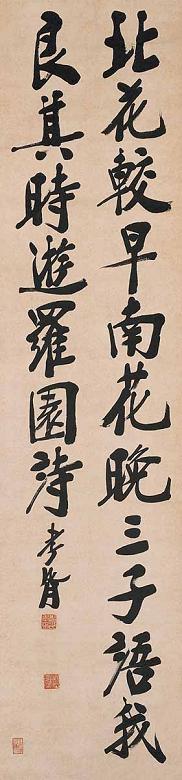 北花較早南花晚三子語我
良其時遊羅園詩 孝胥